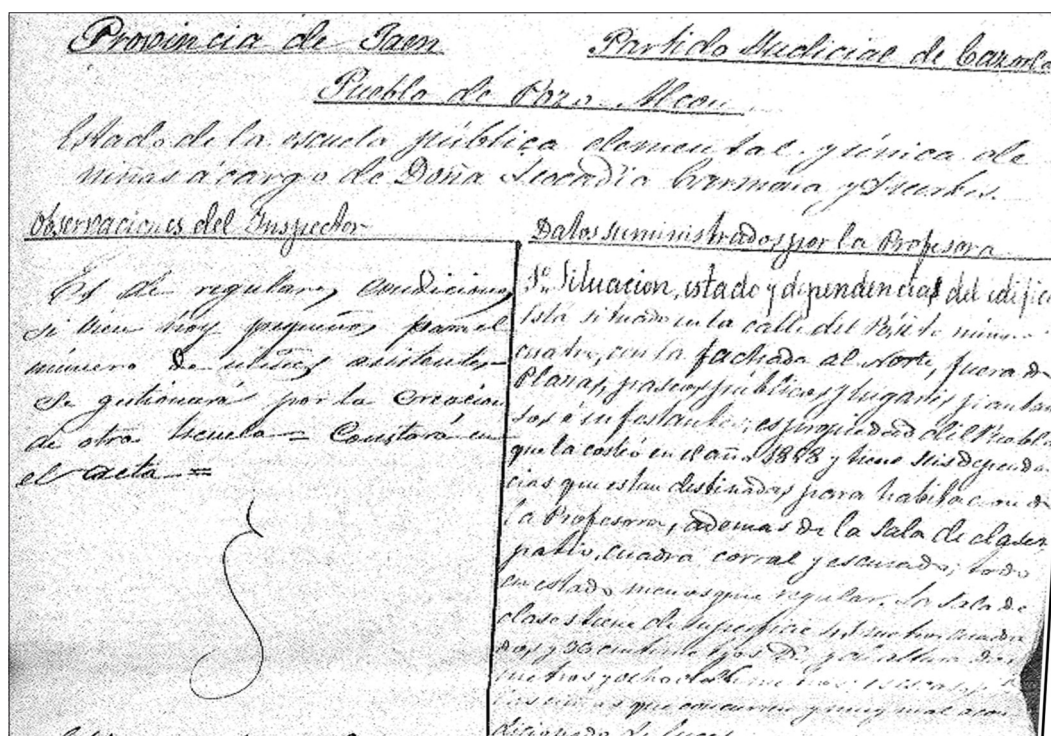 Provincia de Jaen
Partido Judicial de Cazorla
Pueblo de Pozo Alcon
Estado de la escuela pública elemental y única de
niñas á cargo de Doña Leocadia Carmona y
Observaciones del Inspector
Es de regulares condiciones
si bien hoy pequeño para el
número de niñas asistentes
Se gestionará por la creación
de otra Escuela = Constará en
el acta =
Datos suministrados por la Profesora
1º Situacion, estado y dependencias del edificio
Está situado en la calle del núme-
cuatro, con la fachada al Norte, fuera de
Planas, paseos públicos y lugares pantan
sos é infestantes; es propiedad del Pueblo
que la costeó en el año y tiene seis dependen
cias que estan destinadas para habitacion de
la Profesora, ademas de la Sala de clases,
patio, cuadra corral y escusado; todo
en estado menos que regular. La Sala de
clases tiene de superficie
y centimetros y de altura dos
metros y
las niñas que concurren y muy mal acon
dicionada de luces